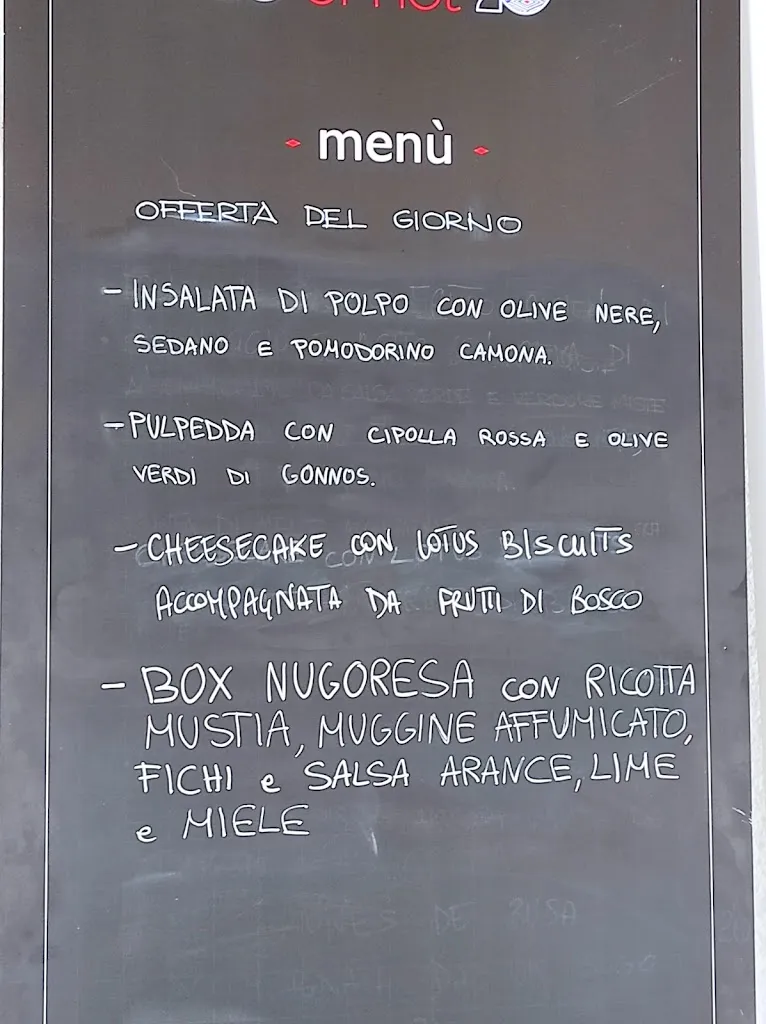 menù
OFFERTA DEL GIORNO
- INSALATA DI POLPO CON OLIVE NERE,
SEDANO E POMODORINO CAMONA.
- PULPEDDA CON CIPOLLA ROSSA E OLIVE
VERDI DI GONNOS.
- CHEESECAKE CON LOTUS BISCUITS
ACCOMPAGNATA DA FRUTTI DI BOSCO
- BOX NUGORESA CON RICOTTA
MUSTIA, MUGGINE AFFUMICATO,
FICHI e SALSA ARANCE, LIME
e MIELE